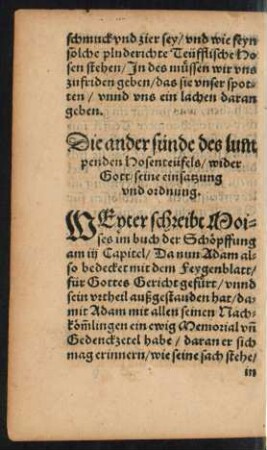 schmuck vnd zier sey/ vnd wie feyn
solche pluderichte Teüfflische Ho-
sen stehen/ In des müssen wir vns
zufriden geben/ das sie vnser spot-
ten / vnnd vns ein lachen daran
geben.
Die ander sünde des lum
penden Hosenteüfels/ wider
Gott seine einsatzung
vnd ordnung.
WEyter schreibt Moi-
ses im buch der Schöpffung
am iij Capitel/ Da nun Adam al-
so bedecket mit dem Feygenblatt/
für Gottes Gericht gefürt/ vnnd
sein vrtheil außgestanden hat/ da-
mit Adam mit allen seinen Nach-
kōmlingen ein ewig Memorial vñ
Gedenckzetel habe / daran er sich
mag erinnern/ wie seine sach stehe/
in